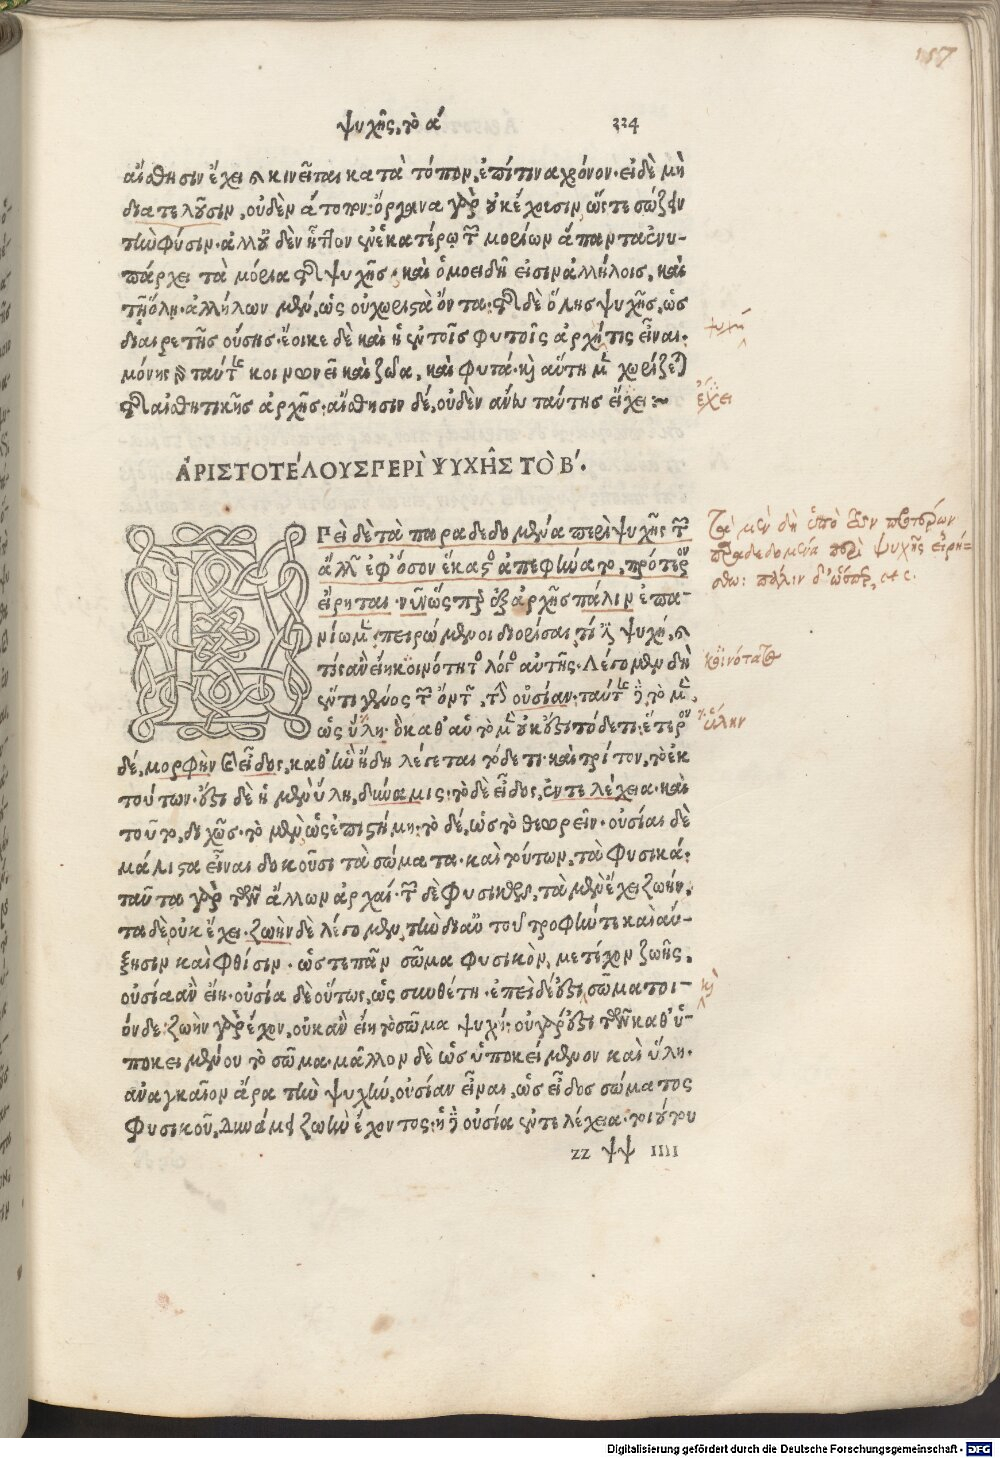 157
ψυχῆς, τὸ α΄ 334
αἴσθησιν ἔχει καὶ κινεῖται κατὰ τόπον, ἐπί τινα χρόνον· εἰ δὲ μὴ
διατελοῦσιν, οὐδὲν ἄτοπον: ὄργανα γὰρ οὐκ ἔχουσιν, ὥστε σώζειν
τὴν φύσιν· ἀλλ' οὐδὲν ἧττον ἐν ἑκατέρῳ τῶν μορίων ἅπαντα ἐνυ-
πάρχει τὰ μόρια τῆς ψυχῆς· καὶ ὁμοειδῆ εἰσιν ἀλλήλοις, καὶ
τῇ ὅλῃ· ἀλλήλων μὲν, ὡς οὐ χωριστὰ ὄντα· τῆς δὲ ὅλης ψυχῆς, ὡς
διαιρετῆς οὔσης· ἔοικε δὲ καὶ ἡ ἐν τοῖς φυτοῖς ἀρχή τις εἶναι·
μόνης γὰρ ταύτης κοινωνεῖ καὶ ζῷα, καὶ φυτά· καὶ αὕτη μὲν χωρίζεται
τῆς αἰσθητικῆς ἀρχῆς· αἴσθησιν δέ, οὐδὲν ἄνω ταύτης εἴχει:~
ψυχή
ἔχει
ἈΡΙΣΤΟΤΈΛΟΥΣ ΓΕΡῚ ΨΥΧΗ͂Σ ΤῸ Β΄.
Ε ΓΕὶ δὲ τὰ παραδεδομένα περὶ ψυχῆς τῶν
ἄλλων ἐφ' ὅσον ἕκαστος ἀπεφήνατο, πρότερον
εἴρηται· νῦν ὥσπερ ἐξ ἀρχῆς πάλιν ἐπα-
νίωμεν· πειρώμενοι διορίσαι τί ἐστι ψυχή, καὶ
τίς ἂν εἴη κοινότητος λόγος αὐτῆς. Λέγομεν δὴ
ἕν τι γένος τῶν ὄντων, τὴν οὐσίαν· ταύτης δὲ, τὸ μὲν,
ὡς ὕλη· ὃ καθ' αὑτὸ μὲν οὐκ ἔστι τόδε τι· ἕτερον
δέ, μορφὴν καὶ εἶδος, καθ' ἣν ἤδη λέγεται τόδε τι· καὶ τρίτον, τὸ ἐκ
τούτων· ἔστι δὲ ἡ μὲν ὕλη, δύναμις: τὸ δὲ εἶδος, ἐντελέχεια· καὶ
τοῦτο, διχῶς· τὸ μὲν ὡς ἐπιστήμη: τὸ δέ, ὡς τὸ θεωρεῖν· οὐσίαι δὲ
μάλιστα εἶναι δοκοῦσι τὰ σώματα· καὶ τούτων, τὰ φυσικά·
ταῦτα γὰρ τῶν ἄλλων ἀρχαί· τῶν δὲ φυσικῶν, τὰ μὲν ἔχει ζωήν,
τὰ δὲ οὐκ ἔχει· ζωὴν δὲ λέγομεν, τὴν δι' αὑτοῦ τροφήν τε καὶ αύ-
ξησιν καὶ φθίσιν· ὥστε πᾶν σῶμα φυσικὸν, μετέχον ζωῆς,
οὐσία ἂν εἴη· οὐσία δὲ οὕτως, ὡς συνθέτη· ἐπεὶ δέ ἐστι σῶμα τοι-
όνδε: ζωὴν γὰρ ἔχον, οὐκ ἂν εἴη τὸ σῶμα ψυχή: οὐ γάρ ἐστι τῶν καθ' ὑ-
ποκειμένου τὸ σῶμα· μᾶλλον δὲ ὡς ὑποκείμενον καὶ ὕλη·
ἀναγκαῖον ἄρα τὴν ψυχὴν, οὐσίαν εἶναι, ὡς εἶδος σώματος
φυσικοῦ, δυνάμει ζωὴν ἔχοντος: ἡ δὲ οὐσία ἐντελέχεια· τοιούτου
τὰ μὲν δὴ ὑπὸ τῶν προτέρων
παραδεδομένα περὶ ψυχῆς εἰρή=
σθω: πάλιν δ' ὥσπερ, etc.
κοινότατος
ὕλην
καὶ
ΖΖ ψψ IIII
Digitalisierung gefördert durch die Deutsche Forschungsgemeinschaft - DFG